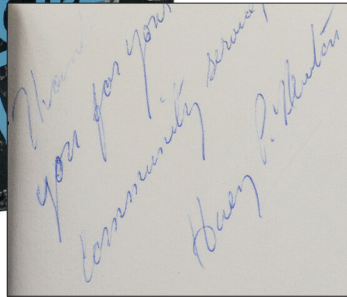 Thank
you for your
community service
Huey P. Newton